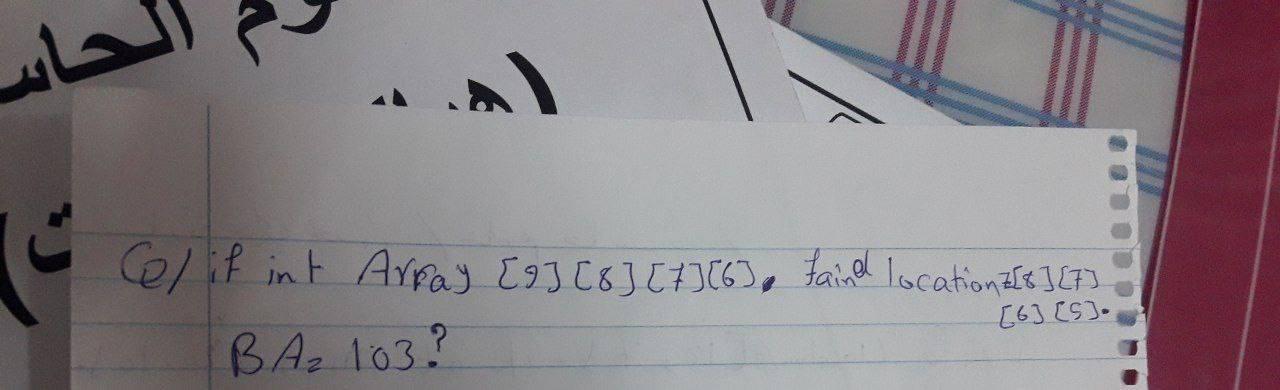 وم الحاس
Q/ if int Array [9][8][7][6]. faind location=[8][7]
[6][5].
BA= 103?